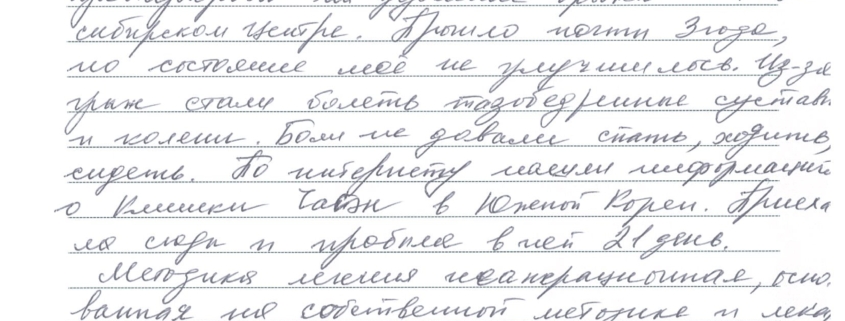 сибирском центре. Прошло почти 3 года,
но состояние моё не улучшилось. Из-за
грыж стали болеть тазобедренные суставы
и колени. Боли не довали спать, ходить,
сидеть. По интернету нашли информацию
о Клиники Чаэн в Южной Кореи. Приеха
ла сюда и пробыла в ней 21 день.
Методика лечения неаперационная, осно
ванная на собственной методике и лека